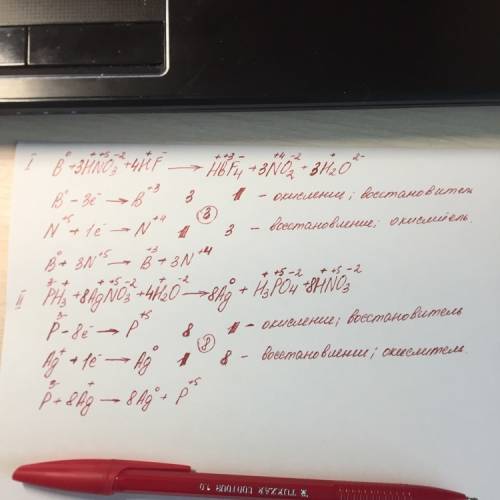 I B⁰ + 3H⁺N⁺⁵O₃⁻² + 4H⁺F⁻ → H⁺B⁺³F₄⁻ + 3N⁺⁴O₂⁻² + 3H₂⁺O²⁻
B⁰ - 3ē → B⁺³ 3 1 - окисление; восстановитель
③
N⁺⁵ + 1ē → N⁺⁴ 1 3 - восстановление; окислитель.
B⁰ + 3N⁺⁵ → B⁺³ + 3N⁺⁴
II P³⁻H₃⁺ + 8Ag⁺N⁺⁵O₃⁻² + 4H₂⁺O⁻² → 8Ag⁰ + H₃⁺P⁺⁵O₄⁻² + 8H⁺N⁺⁵O₃⁻²
P³⁻ - 8ē → P⁺⁵ 8 1 - окисление; восстановитель
⑧
Ag⁺ + 1ē → Ag⁰ 1 8 - восстановление; окислитель.
P³⁻ + 8Ag⁺ → 8Ag⁰ + P⁺⁵
TUKZAR CONTOUR 1.0